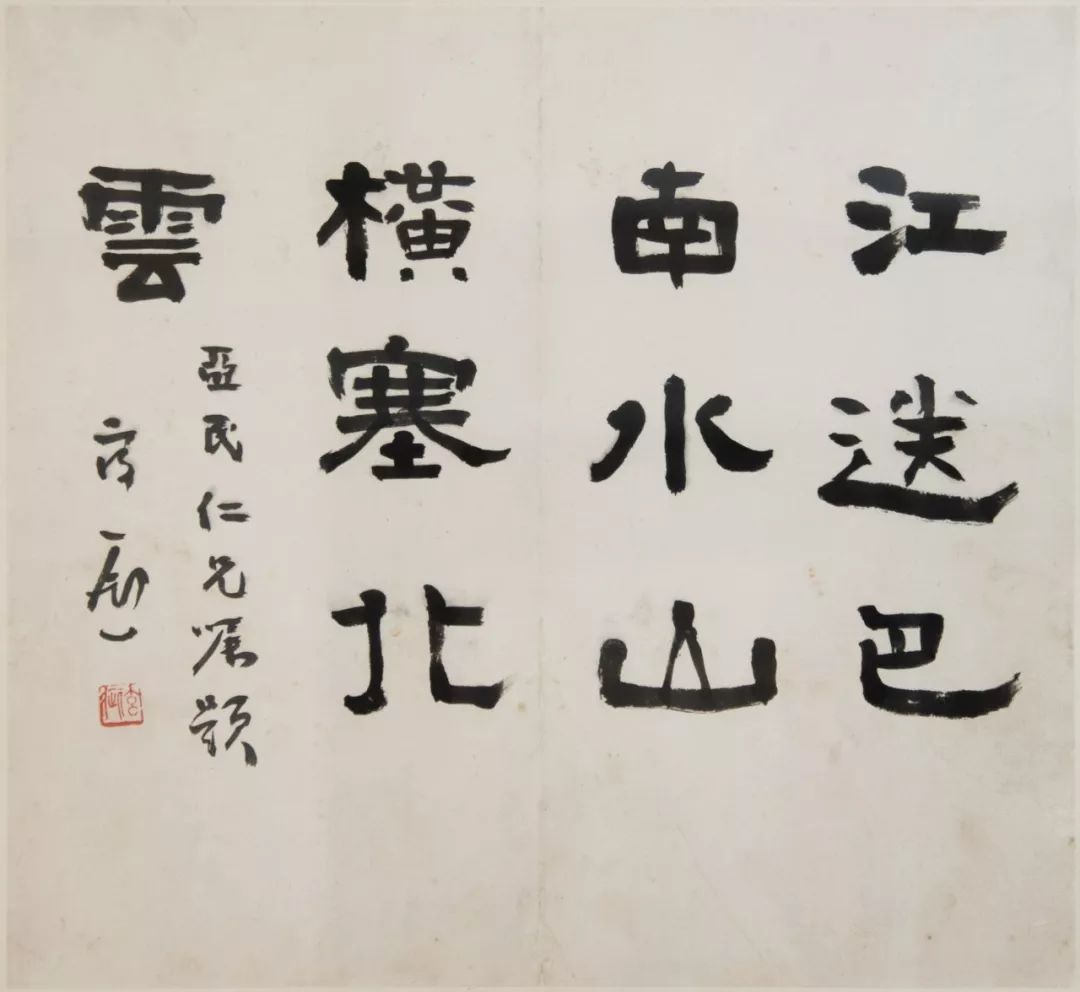 江送巴
南水山
橫塞北
雲
亞民仁兄囑題